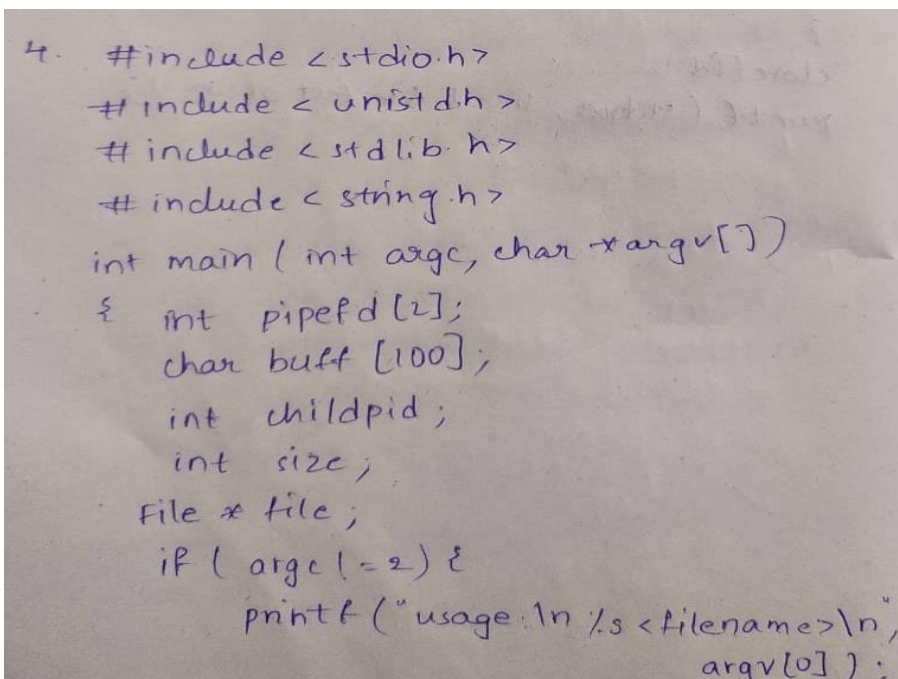 4. #include <stdio.h>
#include <unistd.h>
#include <stdlib.h>
#include <string.h>
int main (int argc, char *argv[])
{ int pipefd [2];
char buff [100];
int childpid;
int size;
File * file;
if (argc != 2) {
printf ("usage:\n %s <filename>\n",
argv[0]);